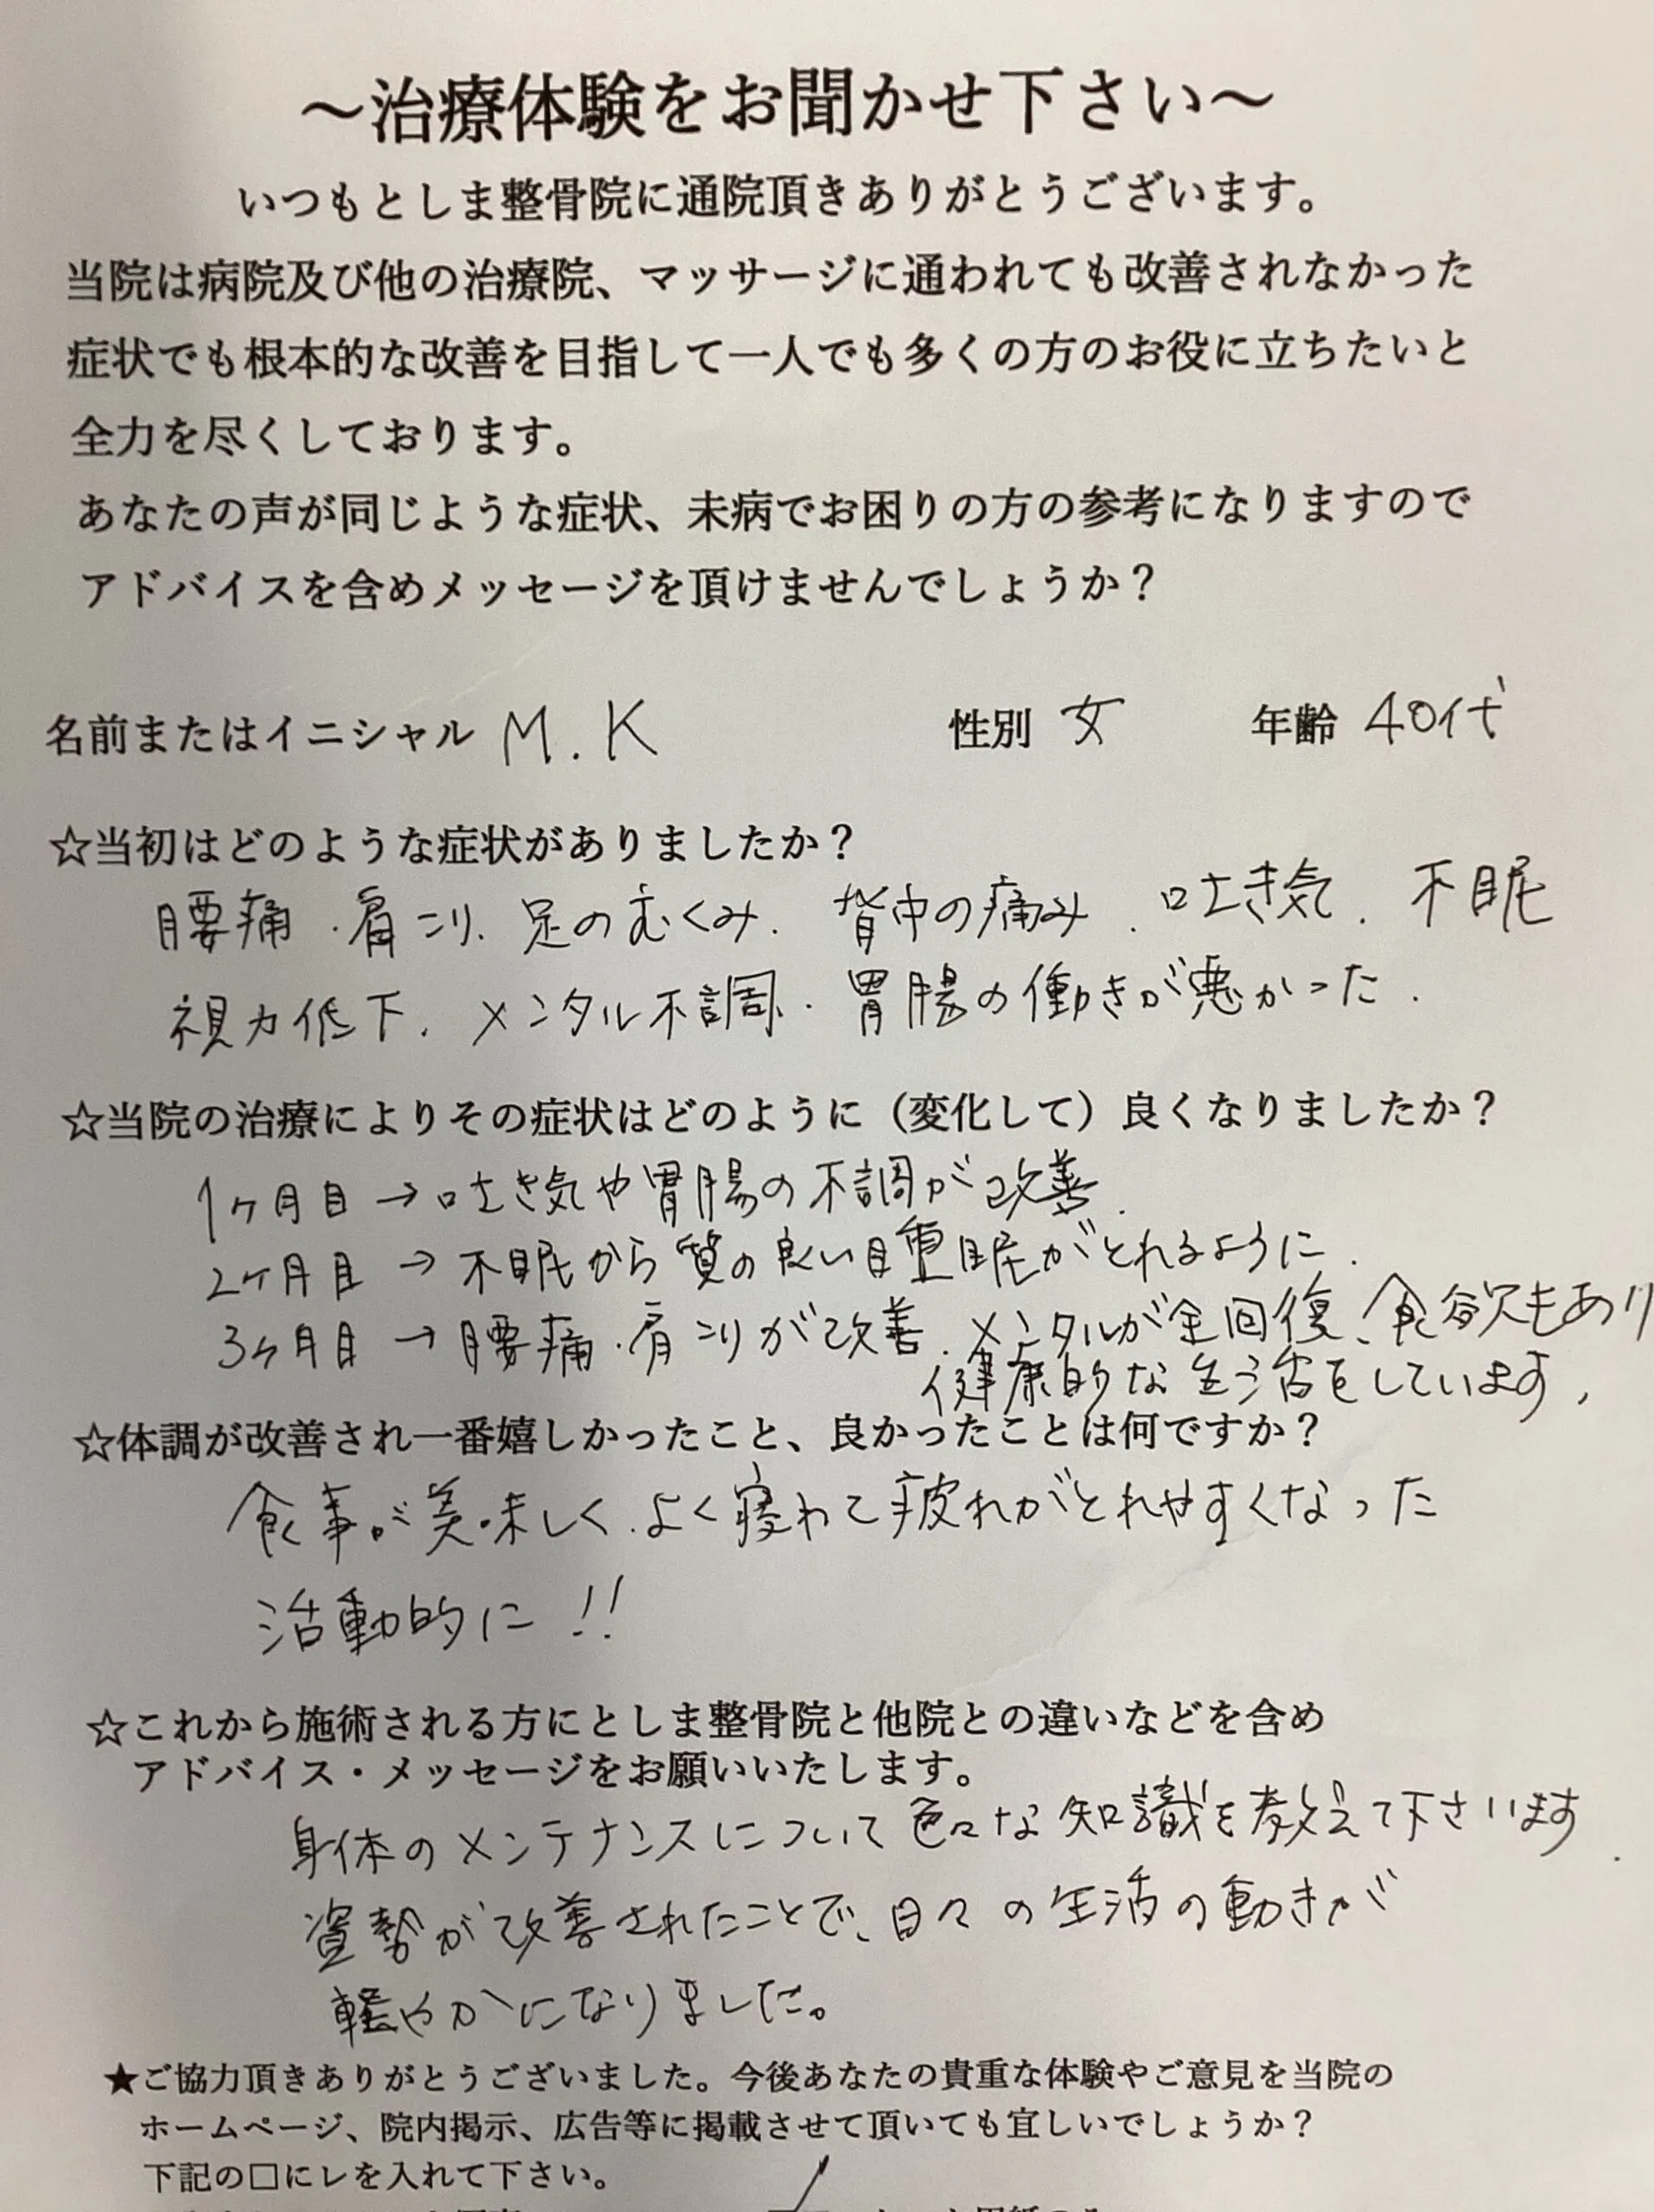 ～治療体験をお聞かせ下さい～
いつもとしま整骨院に通院頂きありがとうございます。
当院は病院及び他の治療院、マッサージに通われても改善されなかった
症状でも根本的な改善を目指して一人でも多くの方のお役に立ちたいと
全力を尽くしております。
あなたの声が同じような症状、未病でお困りの方の参考になりますので
アドバイスを含めメッセージを頂けませんでしょうか？
名前またはイニシャル M.K 性別 女 年齢 40代
☆当初はどのような症状がありましたか？
腰痛.肩こり.足のむくみ.背中の痛み.吐き気.不眠
視力低下.メンタル不調.胃腸の働きが悪かった.
☆当院の治療によりその症状はどのように（変化して）良くなりましたか？
1ヶ月目→吐き気や胃腸の不調が改善.
2ヶ月目→不眠から質の良い睡眠がとれるように.
3ヶ月目→腰痛.肩こりが改善.メンタルが全回復、食欲もあり
健康的な生活をしています,
☆体調が改善され一番嬉しかったこと、良かったことは何ですか？
食事が美味しく.よく寝れて疲れがとれやすくなった
活動的に!!
☆これから施術される方にとしま整骨院と他院との違いなどを含め
アドバイス・メッセージをお願いいたします。
身体のメンテナンスについて色々な知識を教えて下さいます.
姿勢が改善されたことで、日々の生活の動きが
軽やかになりました。
★ご協力頂きありがとうございました。今後あなたの貴重な体験やご意見を当院の
ホームページ、院内掲示、広告等に掲載させて頂いても宜しいでしょうか？
下記の□にレを入れて下さい。